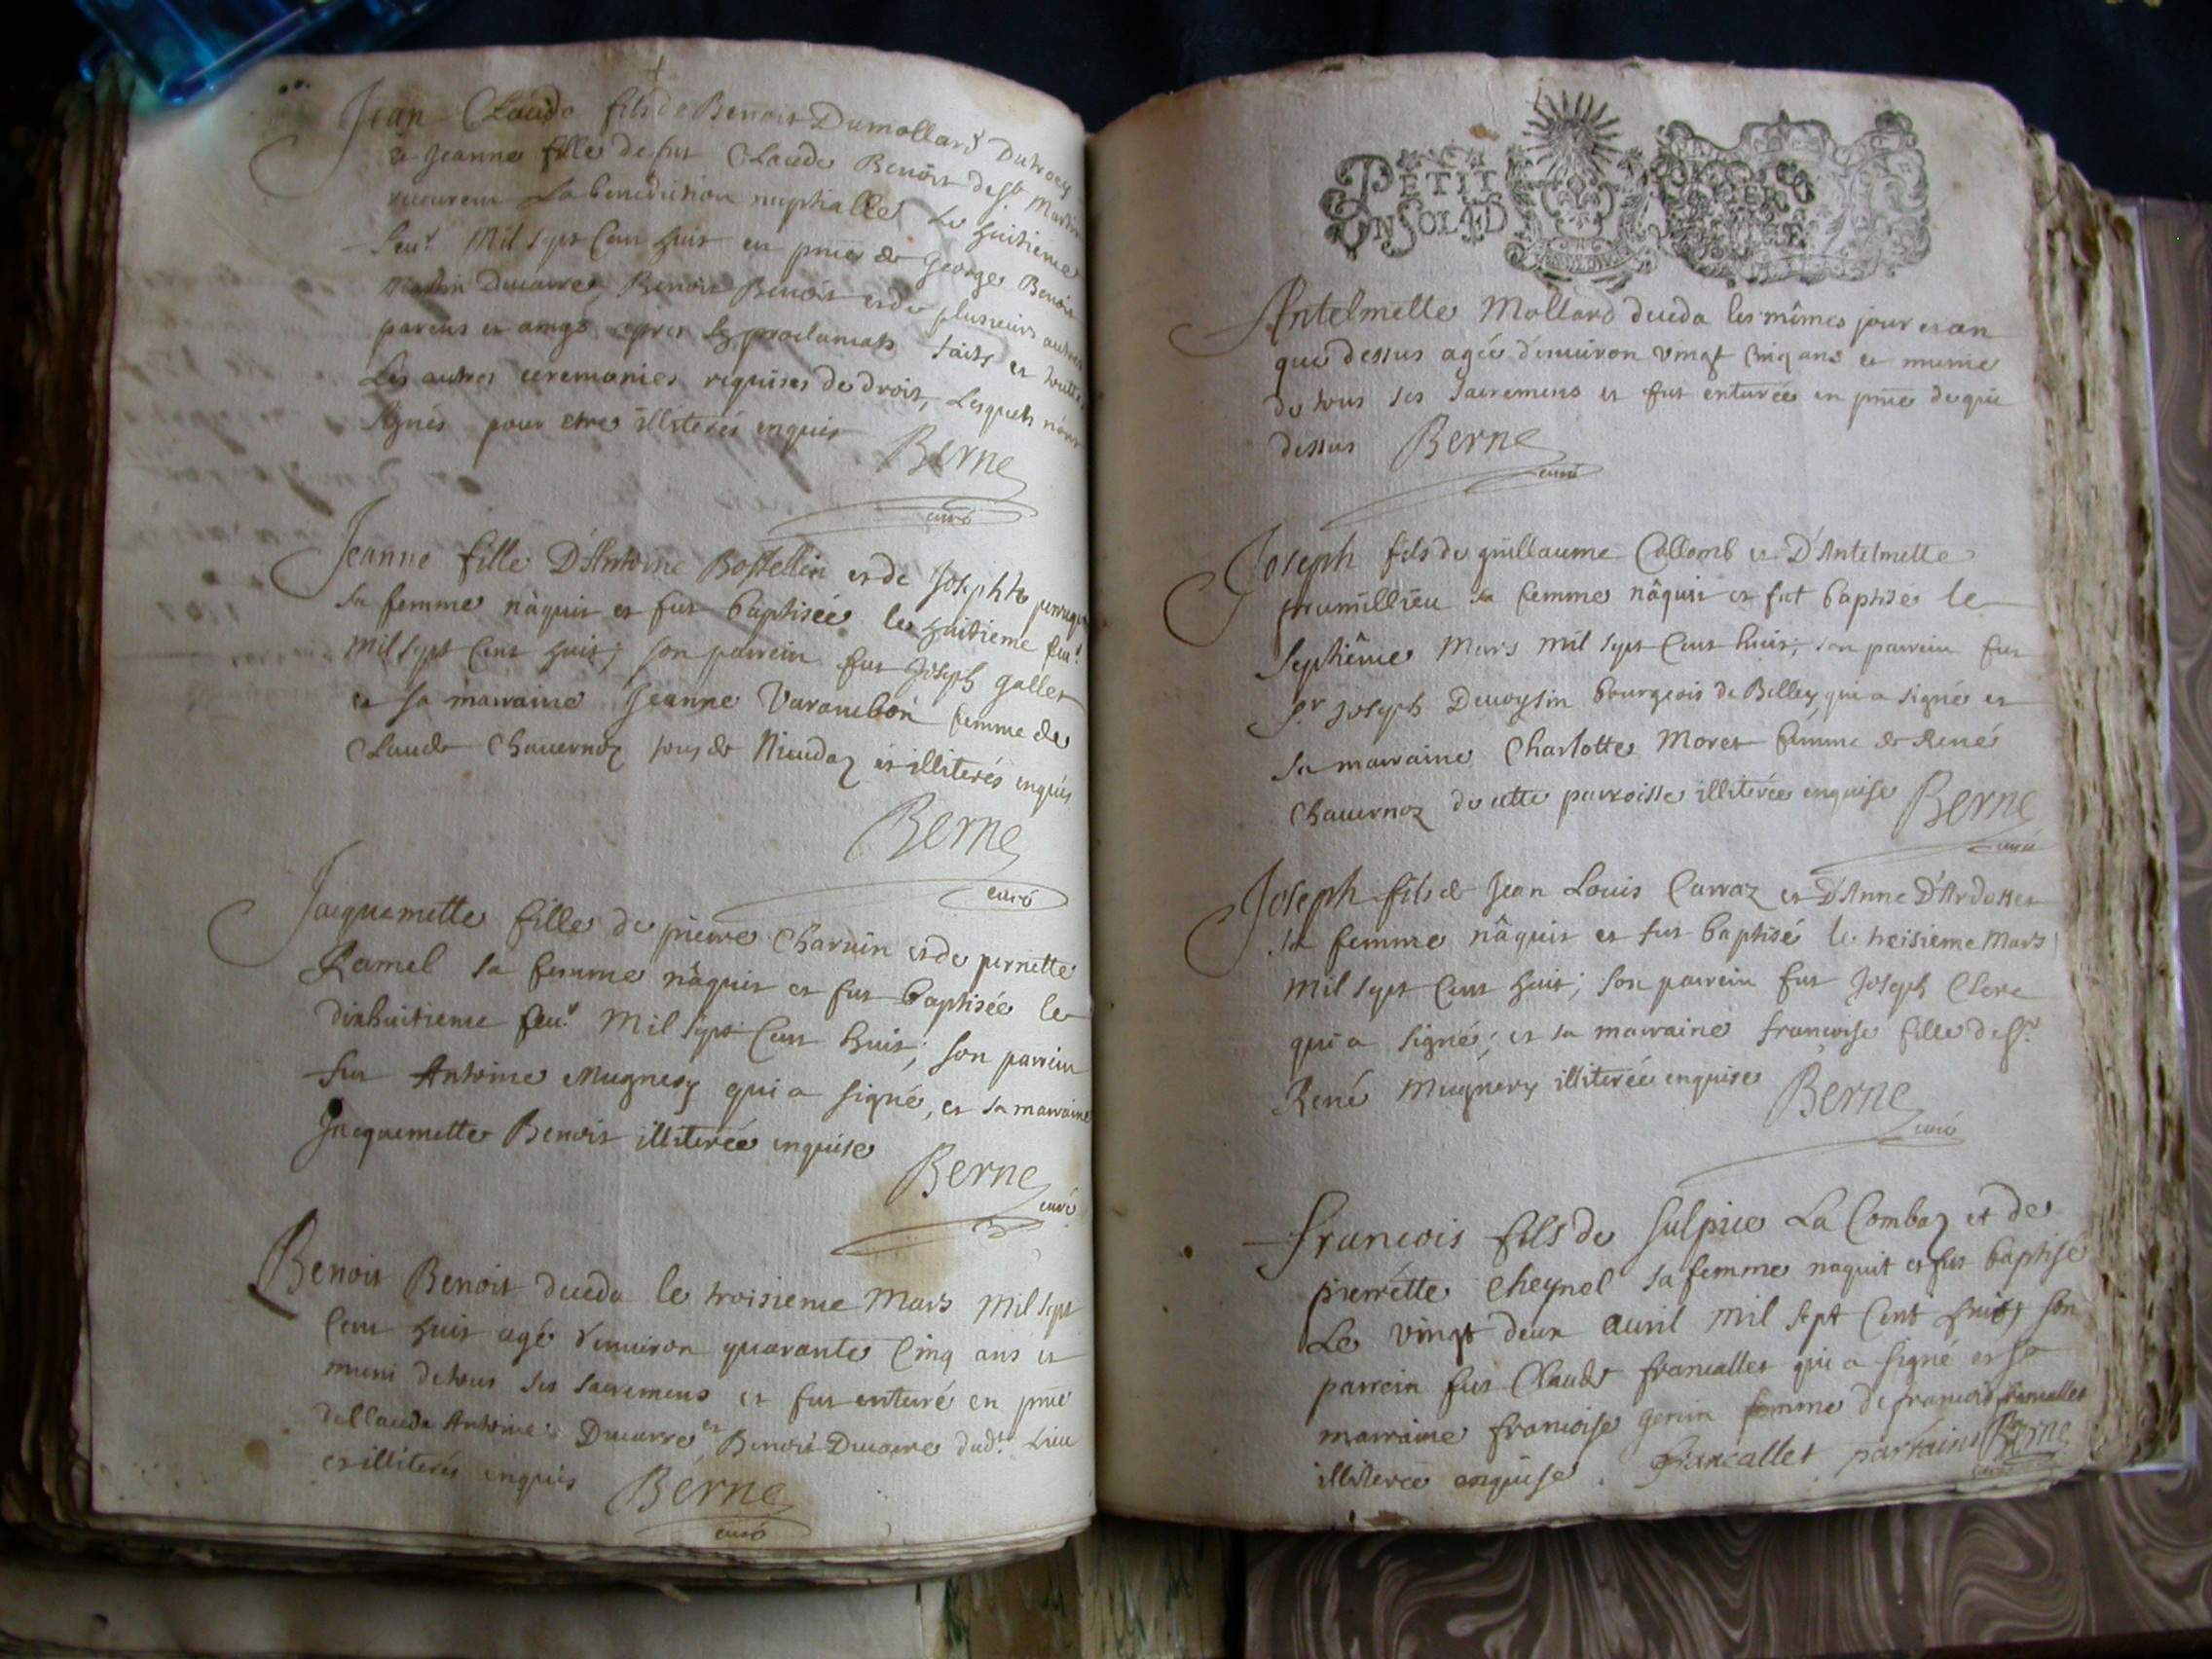 Jean Claude fils de Benoit Dumollard
& Jeanne fille de fut Claude Benoit de St. Martin
receurent La benediction nuphialle Le huitieme
feu.r Mil sept Cent huit en pnce de George Benoit
Ducarre, Benoit Benoit et de plusieurs autres
parens et amys apres proclamats faits et toutes
Les autres ceremonies requises de droit, Lesquels n'ont
signés pour etre illiterés enquis
Berne
curé
Jeanne fille D'Antoine Bostellin et de Josephte
sa femme nâquit et fut baptisée le huitieme feu.r
Mil sept Cent huit; son parrein fut Joseph gallet
et sa marraine Jeanne Varambon femme de
Claude Chauernoz tous de et illiterés enquis
Berne
curé
Jacquemette fille de pierre Charuin et de pernette
Ramel sa femme nâquit et fut baptisée le
dixhuitieme feu.r Mil sept Cent huit; son parrein
fut Antoine Mugnery qui a signé, et sa marraine
Jacquemette Benoit illiterée enquise
Berne
curé
Benoit Benoit deceda le troisieme Mars Mil sept
Cent huit agé d'enuiron quarante Cinq ans et
muni de tous ses sacremens et fut enterré en pnce
de Claude Antoine Ducarre et Benoit Ducarre dud.t Lieu
et illiterés enquis
Berne
curé
PETIT
UN SOL
Antelmette Mollard deceda les mêmes jour et an
que dessus agée d'enuiron vingt Cinq ans et munie
de tous ses sacremens et fut enterrée en pnce de qui
dessus
Berne
curé
Joseph fils de guillaume Collomb et D'Antelmette
prumillieu sa femme nâquit et fut baptisé le
septiême Mars mil sept Cent huit; son parrein fut
sr Joseph Deuoysin bourgeois de Belley, qui a signé et
sa marraine Charlotte Moret femme de René
Chauernoz de cette parroisse illiterée enquise
Berne
curé
Joseph fils de Jean Louis Carraz et D'Anne D'Ardosset
sa femme nâquit et fut baptisé le treisieme Mars
Mil sept Cent huit; son parrein fut Joseph Clerc
qui a signé; et sa marraine francoise fille de ff.t
René Mugnery illiterée enquise
Berne
curé
francois fils de sulpice La Combaz et de
pierrette Cheynel sa femme naquit et fut baptisé
Le vingt deux auril Mil sept Cent huit; son
parrein fut Claude francallet qui a signé et sa
marraine francoise genin femme de francois francallet
illiteree enquise.
francallet
Berne